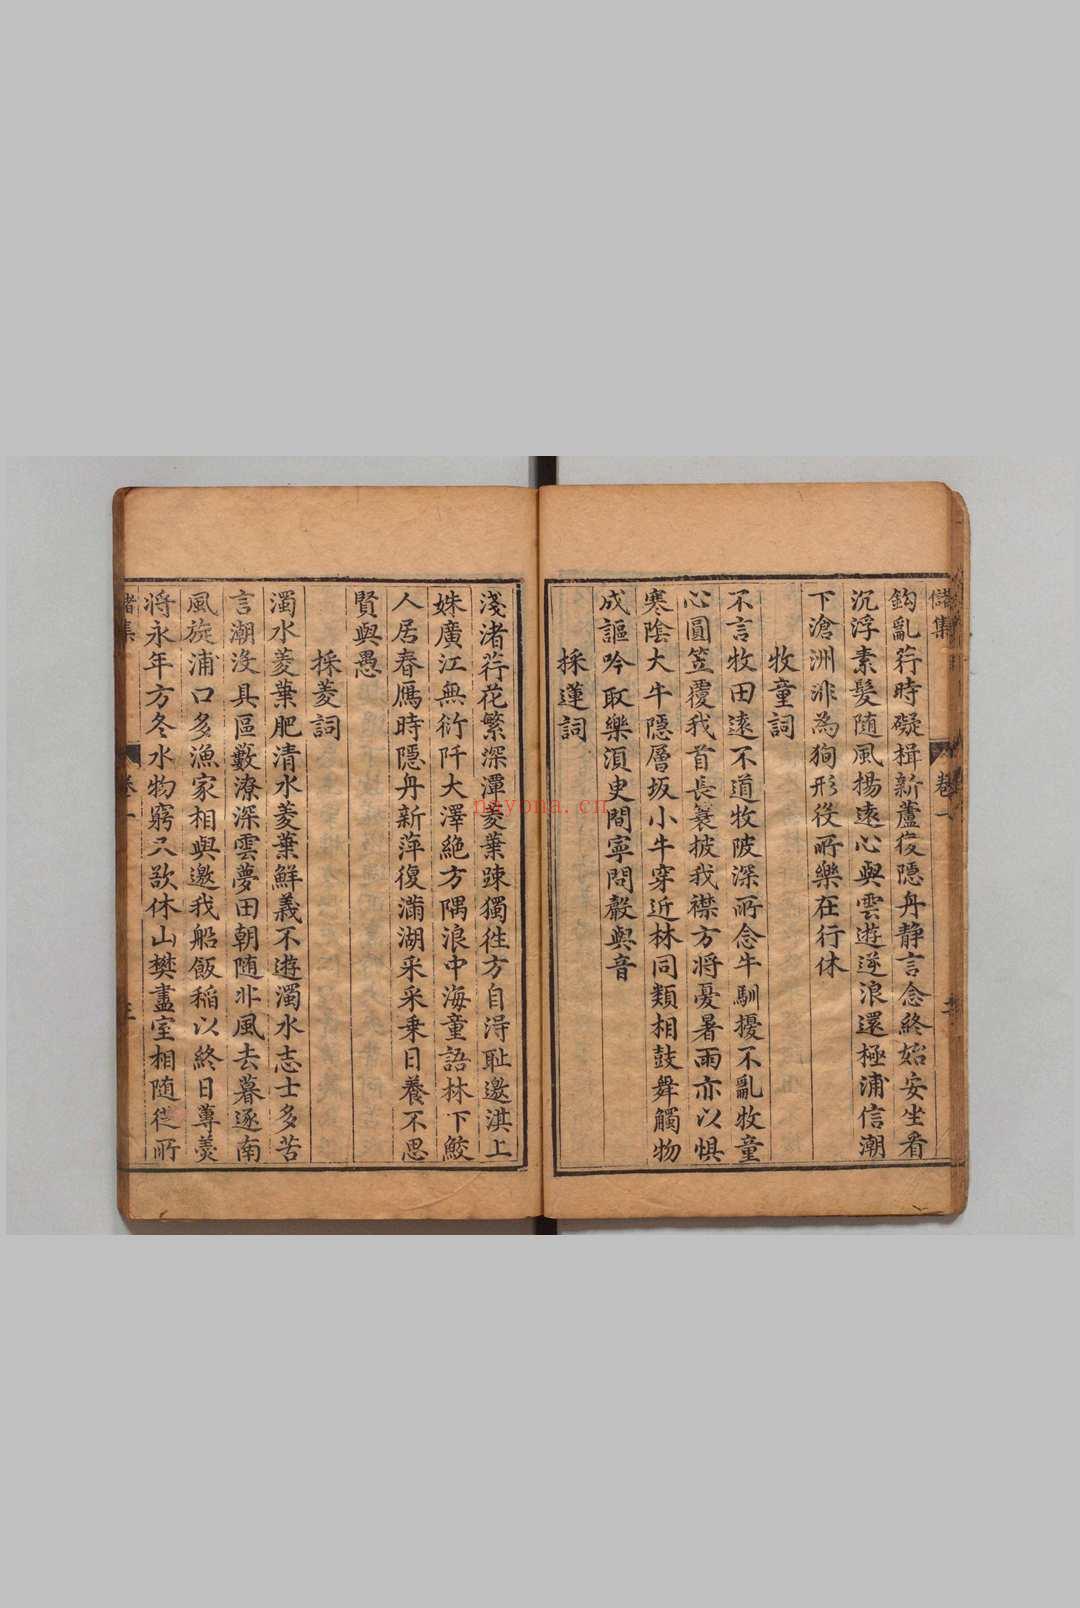 儲集 卷一
鈎亂荇時礙楫新蘆復隱舟静言念終始安坐看
沉浮素髮隨風揚遠心與雲遊逆浪還極浦信潮
下滄洲非為狥形役所樂在行休
牧童詞
不言牧田遠不道牧陂深所念牛馴擾不亂牧童
心圓笠覆我首長蓑披我襟方將憂暑雨亦以惧
寒陰大牛隱層坂小牛穿近林同類相鼓舞觸物
成謳吟取樂湏臾間寧問聲與音
採蓮詞
淺渚荇花繁深潭菱葉踈獨徃方自淂耻邀淇上
姝廣江無衍阡大澤絶方隅浪中海童語林下鮫
人居春鴈時隱舟新萍復滿湖采采乗日養不思
賢與愚
採菱詞
濁水菱葉肥清水菱葉鮮義不遊濁水志士多苦
言潮没具區藪潦深雲夢田朝随北風去暮逐南
風旋浦口多漁家相與邀我船飯稲以終日蓴羮
將永年方冬水物窮又欲休山樊盡室相随從所
儲集 卷一
nayona.cn